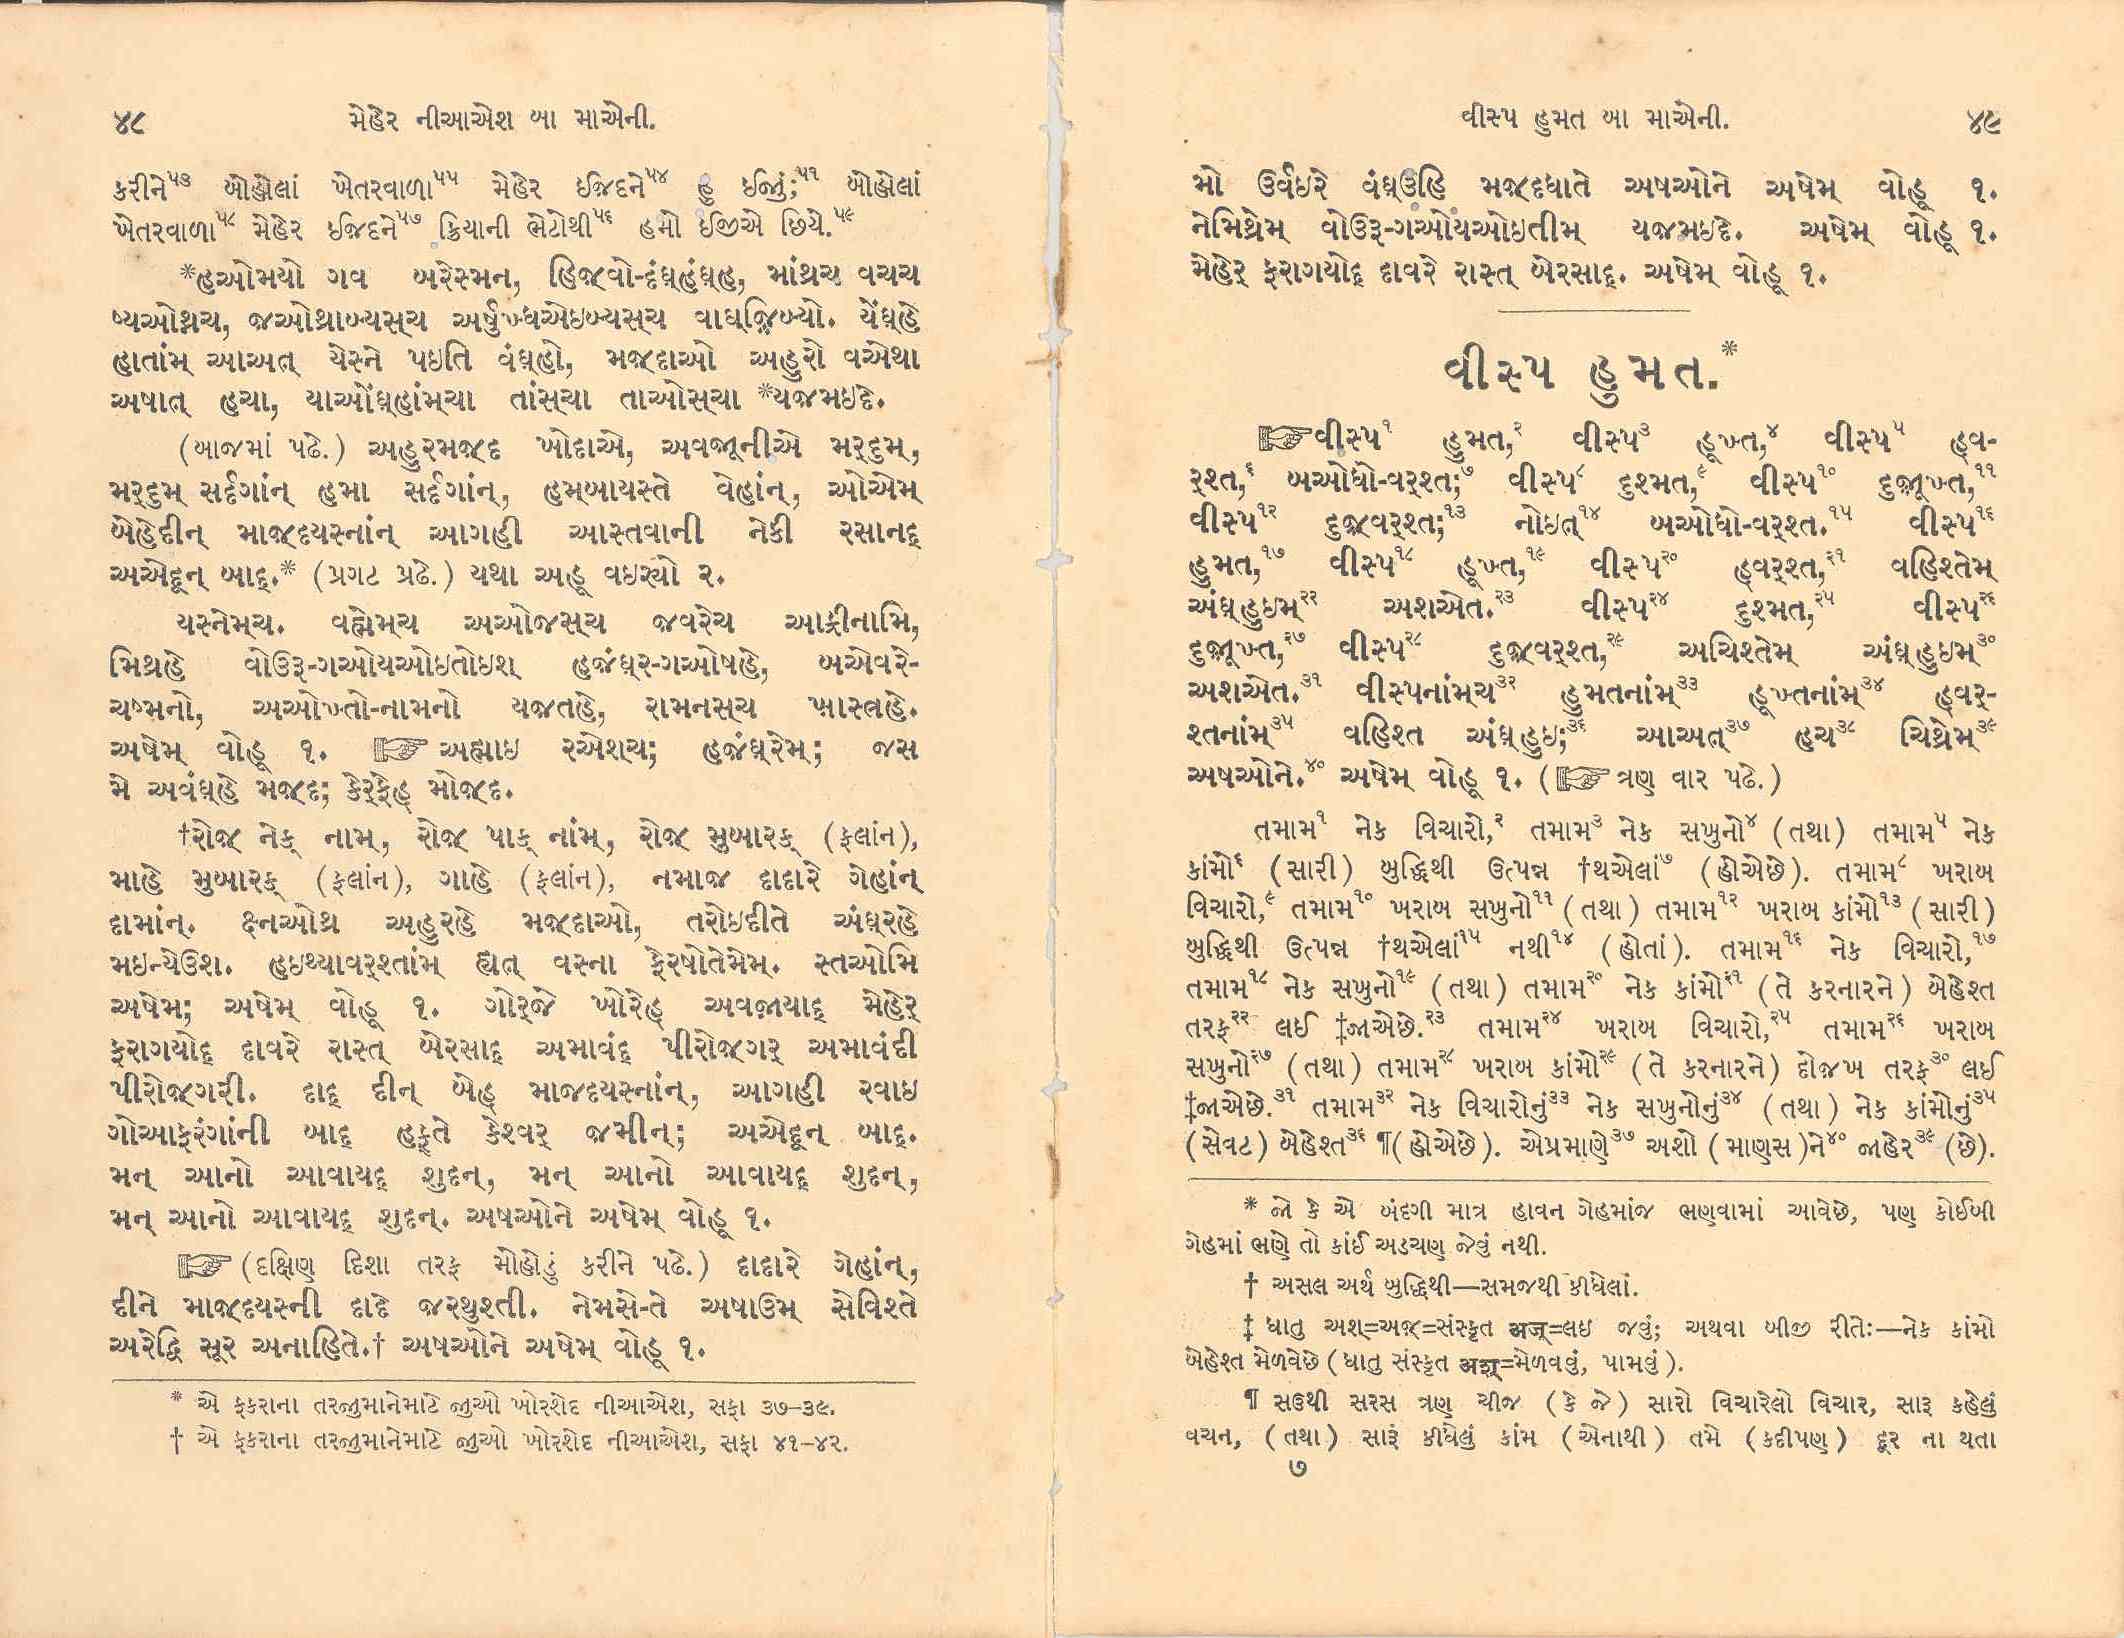 ૪૮ મેહેર નીઆએશ બા માએની.
કરીને૫૩ બોહોલાં ખેતરવાળા૫૫ મેહેર ઇજ઼દને૫૪ હુ ઇજું;૫૧ બોહોલાં
ખેતરવાળા૫૮ મેહેર ઇજ઼દને૫૭ ક્રિયાની ભેટોથી૫૬ હમો ઇજીએ છિયે.૫૯
*હઓમયો ગવ બરેસ્મન, હિજ઼્વો-દંઘ઼્હંઘ઼્હ, માંથ્રચ વચચ
ષ્યઓથ્નચ, જ઼ઓથ્રાબ્યસ્ચ અર્ષુખ્ધએઇબ્યસ્ચ વાઘ઼્જ઼િબ્યો. યેંઘ઼્હે
હાતાંમ્ આઅત્ યેસ્ને પઇતિ વંઘ઼્હો, મજ઼્દાઓ અહુરો વએથા
અષાત્ હચા, યાઓંઘ઼્હાંમ્ચા તાંસ્ચા તાઓસ્ચા *યજ઼મઇદે.
(બાજમાં પઢે.) અહુરમજ઼્દ ખોદાએ, અવજ઼ૂનીએ મર્‌દુમ્,
મર્‌દુમ્ સર્દગાંન્ હમા સર્દગાંન્, હમ્બાયસ્તે વેહાંન્, ઓએમ્
બેહેદીન્ માજ઼્દયસ્નાંન્ આગહી આસ્તવાની નેકી રસાનદ્
અએદૂન્ બાદ્.* (પ્રગટ પ્રઢે.) યથા અહૂ વઇર્યો ૨.
યસ્નેમ્ચ. વહ્મેમ્ચ અઓજસ્ચ જ઼વરેચ આફ્રીનામિ,
મિથ્રહે વોઉરૂ-ગઓયઓઇતોઇશ હજ઼ંઘ઼્ર-ગઓષહે, બએવરે-
ચષ્મનો, અઓખ્તો-નામનો યજ઼તહે, રામનસ્ચ ખ઼ાસ્ત્રહે.
અષેમ્ વોહૂ ૧. ☞ અહ્માઇ રએશ્ચ; હજ઼ંઘ઼્રેમ્; જસ
મે અવંઘ઼્હે મજ઼્દ; કેર્‌ફેહ્ મોજ઼્દ.
†રોજ઼્ નેક્ નામ્, રોજ઼્ પાક્ નાંમ્, રોજ઼્ મુબારક્ (ફલાંન),
માહે મુબારક્ (ફલાંન), ગાહે (ફલાંન), નમાજ઼ દાદારે ગેહાંન્
દામાંન્. ક્ષ્નઓથ્ર અહુરહે મજ઼્દાઓ, તરોઇદીતે અંઘ઼્રહે
મઇન્યેઉશ. હઇથ્યાવર્‌શ્તાંમ્ હ્યત્ વસ્ના ફેરષોતેમેમ્. સ્તઓમિ
અષેમ; અષેમ્ વોહૂ ૧. ગોર્‌જે ખોરેહ્ અવજ઼ાયાદ્ મેહેર્
ફરાગયોદ્ દાવરે રાસ્ત્ બેરસાદ્ અમાવંદ્ પીરોજ઼્ગર્ અમાવંદી
પીરોજ઼્ગરી. દાદ્ દીન્ બેહ્ માજ઼દયસ્નાંન્, આગહી રવાઇ
ગોઆફરંગાંની બાદ્ હફ્તે કેશ્વર્ જ઼મીન્; અએદૂન્ બાદ્.
મન્ આનો આવાયદ્ શુદન્, મન્ આનો આવાયદ્ શુદન્,
મન્ આનો આવાયદ્ શુદન્. અષઓને અષેમ્ વોહૂ ૧.
☞ (દક્ષિણ દિશા તરફ મોહોડું કરીને પઢે.) દાદારે ગેહાંન્,
દીને માજ઼્દયસ્ની દાદે જ઼રથુશ્તી. નેમસે-તે અષાઉમ્ સેવિશ્તે
અરેદ્વિ સૂર અનાહિતે.† અષઓને અષેમ્ વોહૂ ૧.
* એ ફકરાના તરજુમાનેમાટે જુઓ ખોરશેદ નીઆએશ, સફા ૩૭-૩૯.
† એ ફકરાના તરજુમાનેમાટે જુઓ ખોરશેદ નીઆએશ, સફા ૪૧-૪૨.
વીસ્પ હુમત બા માએની. ૪૯
મો ઉર્વઇરે વંઘ઼્ઉહિ મજ઼્દધાતે અષઓને અષેમ્ વોહૂ ૧.
નેમિથ્રેમ્ વોઉરૂ-ગઓયઓઇતીમ્ યજ઼મઇદે. અષેમ્ વોહૂ ૧.
મેહેર્ ફરાગયોદ્ દાવરે રાસ્ત્ બેરસાદ્. અષેમ્ વોહૂ ૧.
વીસ્પ હુમત.*
☞વીસ્પ૧ હુમત,૨ વીસ્પ૩ હૂખ્ત,૪ વીસ્પ૫ હ્વ-
ર્‌શ્ત,૬ બઓધો-વર્‌શ્ત;૭ વીસ્પ૮ દુશ્મત,૯ વીસ્પ૧૦ દુજ઼ૂખ્ત,૧૧
વીસ્પ૧૨ દુજ઼્વર્‌શ્ત;૧૩ નોઇત્૧૪ બઓધો-વર્‌શ્ત.૧૫ વીસ્પ૧૬
હુમત,૧૭ વીસ્પ૧૮ હૂખ્ત,૧૯ વીસ્પ૨૦ હ્વર્‌શ્ત,૨૧ વહિશ્તેમ્
અંઘ઼્હુઇમ્૨૨ અશએત.૨૩ વીસ્પ૨૪ દુશ્મત,૨૫ વીસ્પ૨૬
દુજ઼ૂખ્ત,૨૭ વીસ્પ૨૮ દુજ઼્વર્‌શ્ત,૨૯ અચિશ્તેમ્ અંઘ઼્હુઇમ્૩૦
અશએત.૩૧ વીસ્પનાંમ્ચ૩૨ હુમતનાંમ્૩૩ હૂખ્તનાંમ્૩૪ હ્વર્-
શ્તનાંમ્૩૫ વહિશ્ત અંઘ઼્હુઇ;૩૬ આઅત્૩૭ હચ૩૮ ચિથ્રેમ્૩૯
અષઓને.૪૦ અષેમ્ વોહૂ ૧. (☞ ત્રણ વાર પઢે.)
તમામ૧ નેક વિચારો,૨ તમામ૩ નેક સખુનો૪ (તથા) તમામ૫ નેક
કાંમો૬ (સારી) બુદ્ધિથી ઉત્પન્ન †થએલાં૭ (હોએછે). તમામ૮ ખરાબ
વિચારો,૯ તમામ૧૦ ખરાબ સખુનો૧૧ (તથા) તમામ૧૨ ખરાબ કાંમો૧૩ (સારી)
બુદ્ધિથી ઉત્પન્ન †થએલાં૧૫ નથી૧૪ (હોતાં). તમામ૧૬ નેક વિચારો,૧૭
તમામ૧૮ નેક સખુનો૧૯ (તથા) તમામ૨૦ નેક કાંમો૨૧ (તે કરનારને) બેહેશ્ત
તરફ૨૨ લઈ ‡જાએછે.૨૩ તમામ૨૪ ખરાબ વિચારો,૨૫ તમામ૨૬ ખરાબ
સખુનો૨૭ (તથા) તમામ૨૮ ખરાબ કાંમો૨૯ (તે કરનારને) દોજખ તરફ૩૦ લઈ
‡જાએછે.૩૧ તમામ૩૨ નેક વિચારોનું૩૩ નેક સખુનોનું૩૪ (તથા) નેક કાંમોનું૩૫
(સેવટ) બેહેશ્ત૩૬ ¶(હોએછે). એપ્રમાણે૩૭ અશો (માણસ)ને૪૦ જાહેર૩૯ (છે).
* જો કે એ બંદગી માત્ર હાવન ગેહમાંજ ભણવામાં આવેછે, પણ કોઈબી
ગેહમાં ભણે તો કાંઈ અડચણ જેવું નથી.
† અસલ અર્થ બુદ્ધિથી—સમજથી કીધેલાં.
‡ ધાતુ અશ્=અજ઼્=સંસ્કૃત अज्=લઇ જવું; અથવા બીજી રીતેઃ—નેક કાંમો
બેહેશ્ત મેળવેછે (ધાતુ સંસ્કૃત अश्=મેળવવું, પામવું).
¶ સઉથી સરસ ત્રણ ચીજ (કે જે) સારો વિચારેલો વિચાર, સારૂ કહેલું
વચન, (તથા) સારૂં કીધેલું કાંમ (એનાથી) તમે (કદીપણ) દૂર ના થતા
૭